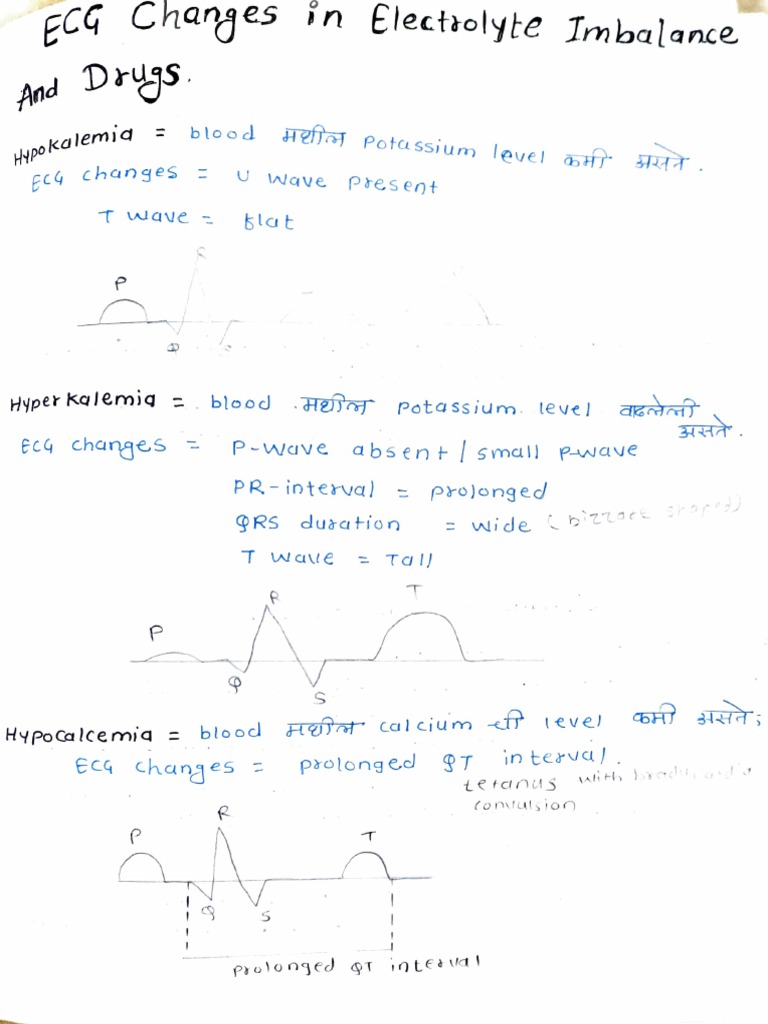 ECG Changes in Electrolyte Imbalance
And Drugs.
Hypokalemia = blood मधील potassium level कमी असते.
ECG changes = U wave present
T wave = flat
R
P
Q
S
Hyperkalemia = blood मधील potassium level वाढलेली
असते.
ECG changes = P-wave absent / small p-wave
PR-interval = prolonged
QRS duration = wide (bizzare shaped)
T wave = Tall
R
T
P
Q
S
Hypocalcemia = blood मधील calcium ची level कमी असते;
ECG changes = prolonged QT interval.
tetanus with
convulsion
R
P
T
Q
S
prolonged QT interval